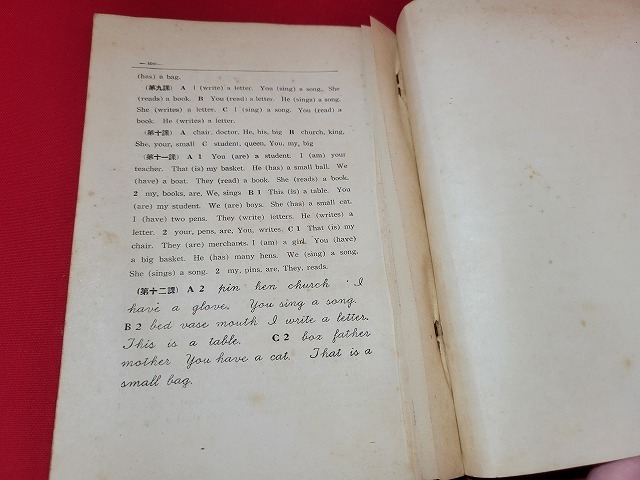 (has) a bag.
(第九課) A I (write) a letter. You (sing) a song. She
(reads) a book. B You (read) a letter. He (sings) a song.
She (writes) a letter. C I (sing) a song. You (read) a
book. He (writes) a letter.
(第十課) A chair, doctor, He, his, big B church, king,
She, your, small C student, queen, You, my, big
(第十一課) A 1 You (are) a student. I (am) your
teacher. That (is) my basket. He (has) a small ball. We
(have) a boat. They (read) a book. She (reads) a book.
2 my, books, are, We, sings B 1 This (is) a table. You
(are) my student. We (are) boys. She (has) a small cat.
I (have) two pens. They (write) letters. He (writes) a
letter. 2 your, pens, are, You, writes. C 1 That (is) my
chair. They (are) merchants. I (am) a girl. You (have)
a big basket. He (has) many hens. We (sing) a song.
She (sings) a song. 2 my, pins, are, They, reads.
(第十二課) A 2 pin hen church I
have a glove. You sing a song.
B 2 bed vase mouth I write a letter.
This is a table. C 2 box father
mother You have a cat. That is a
small bag.